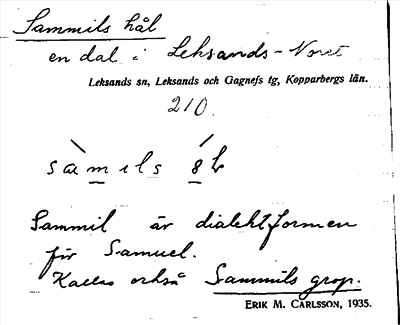 Sammils hål
en dal i Leksands-Noret
Leksands sn, Leksands och Gagnefs tg, Kopparbergs län.
210.
Sammil är dialektformen
för Samuel.
Kallas också Sammils grop.
ERIK M. CARLSSON, 1935.